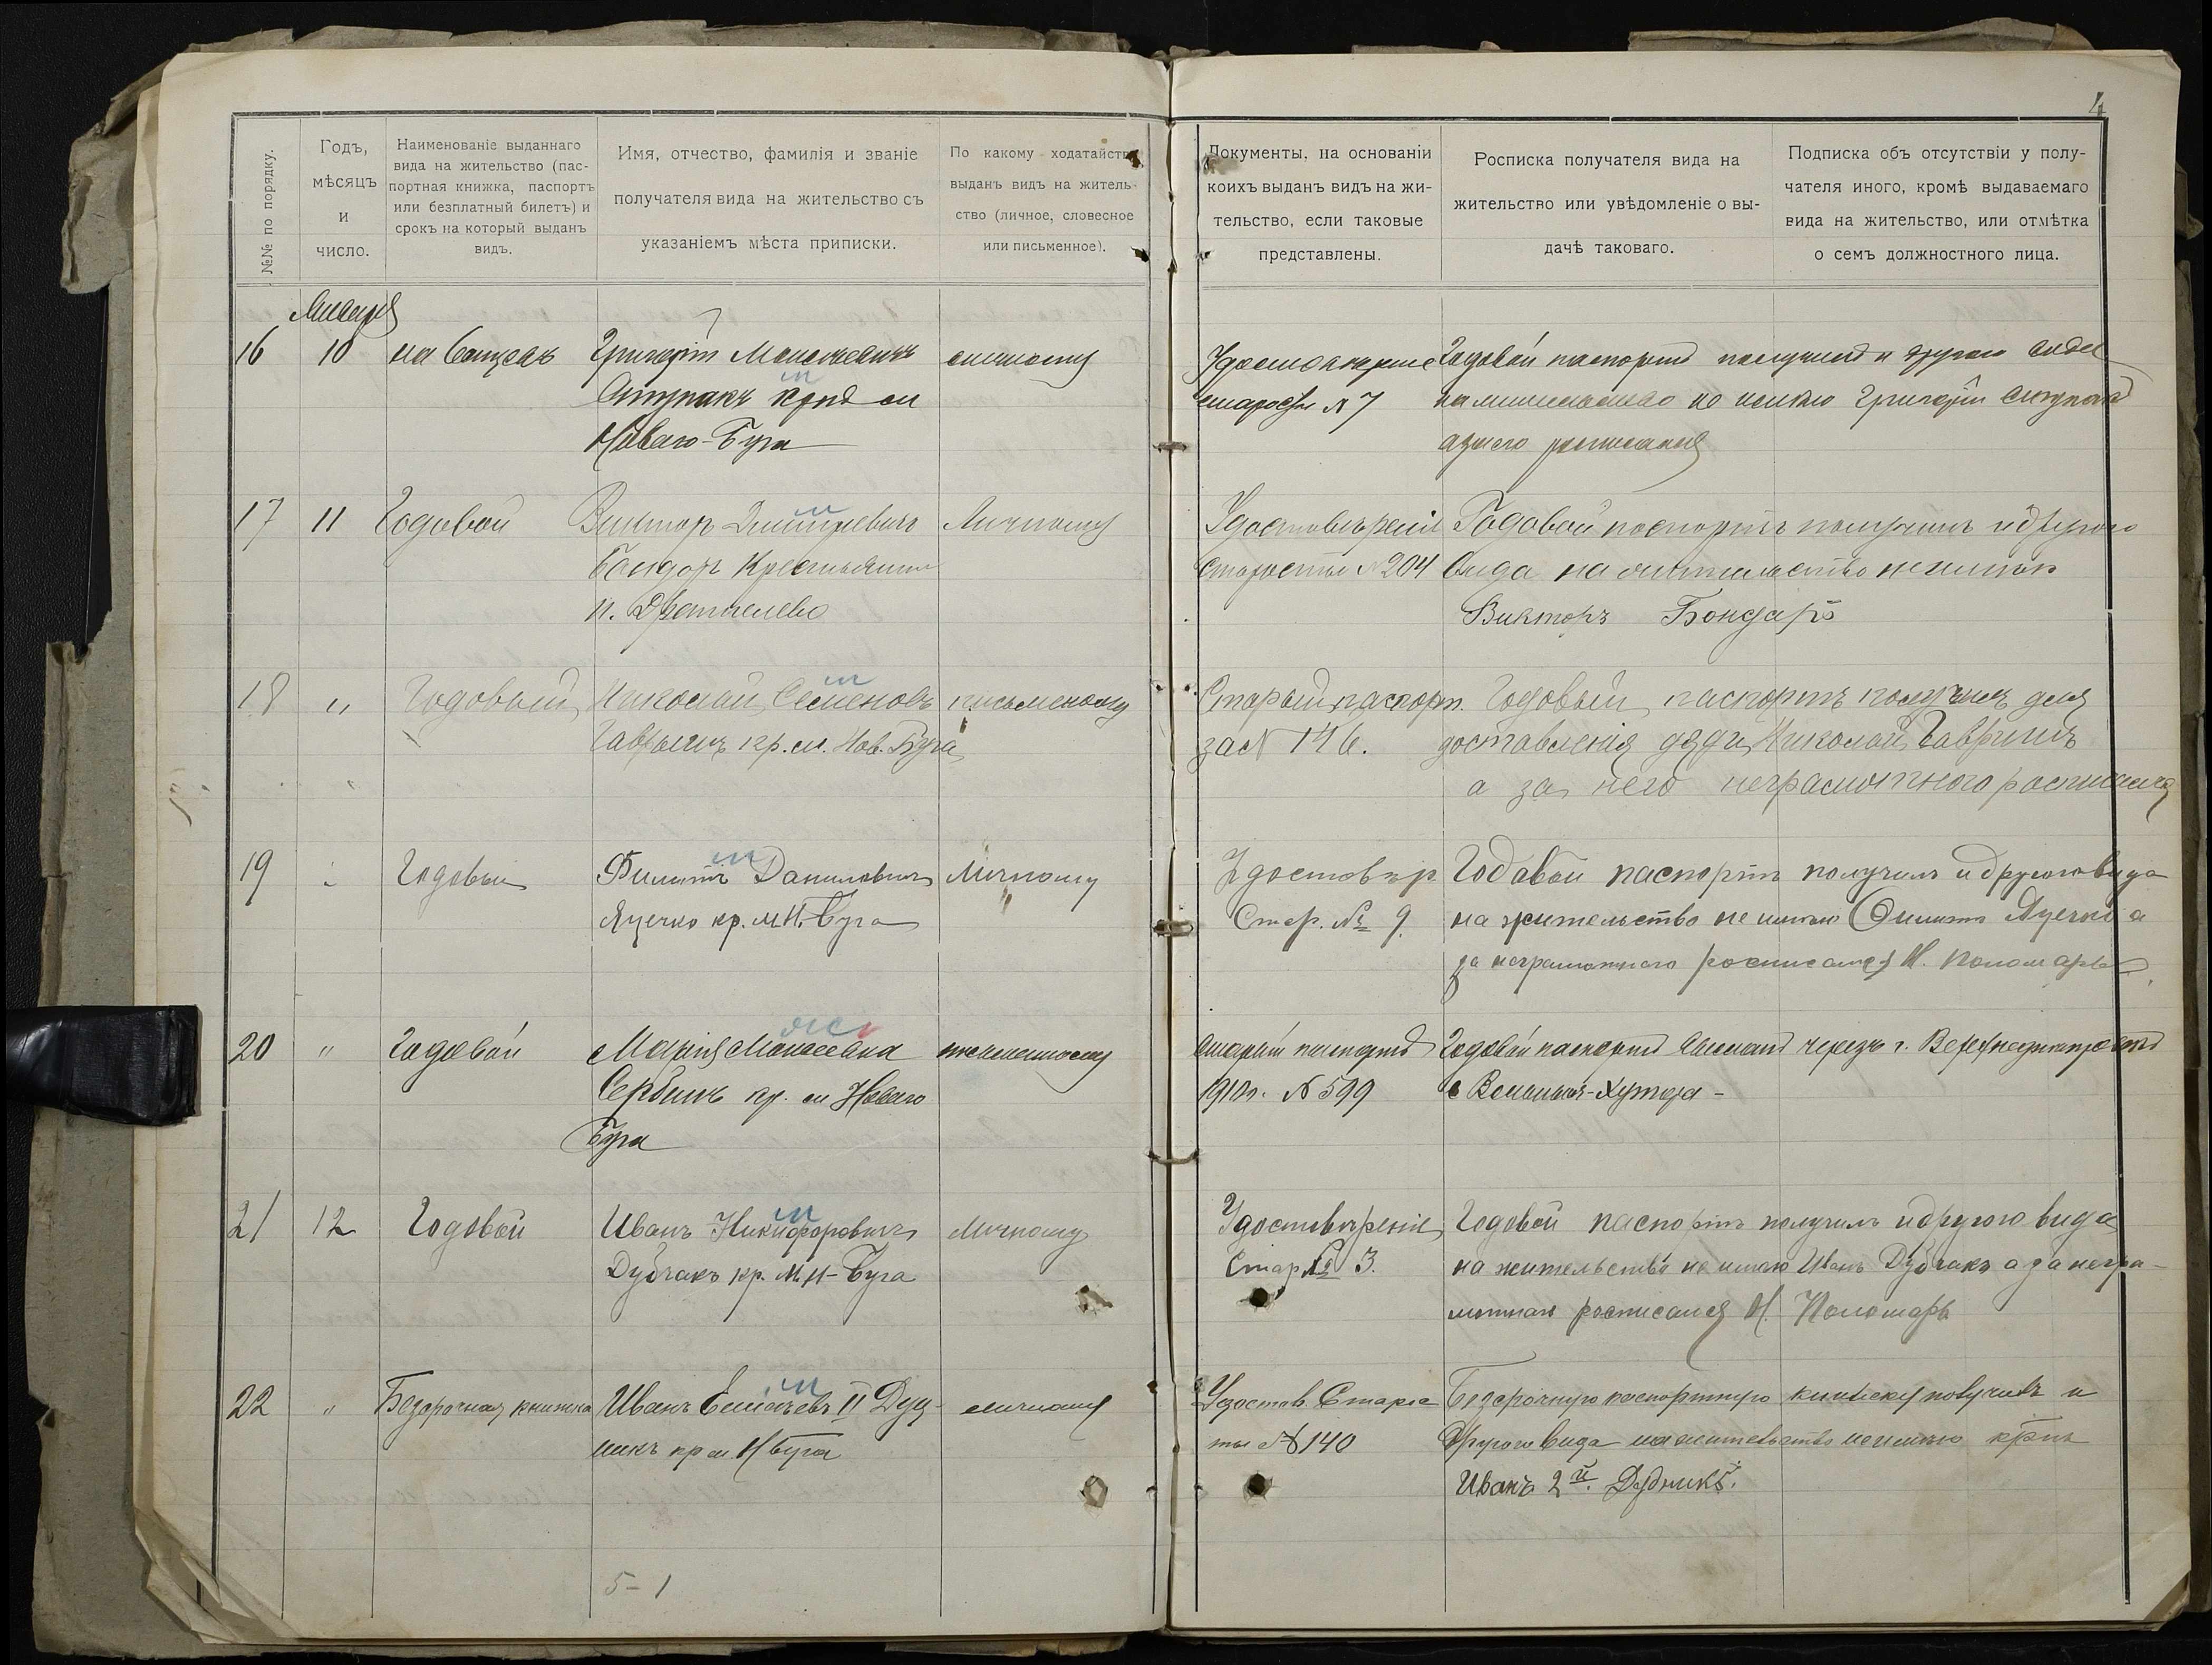 4
№№ по порядку.
Годъ,
мѣсяцъ
и
число.
Наименованіе выданнаго
вида на жительство (пас-
портная книжка, паспортъ
или безплатный билетъ) и
срокъ на который выданъ
видъ.
Имя, отчество, фамилія и званіе
получателя вида на жительство съ
указаніемъ мѣста приписки.
По какому ходатайств
выданъ видъ на житель-
ство (личное, словесное
или письменное).
Документы, на основаніи
коихъ выданъ видъ на жи-
тельство, если таковые
представлены.
Росписка получателя вида на
жительство или увѣдомленіе о вы-
дачѣ таковаго.
Подписка объ отсутствіи у полу-
чателя иного, кромѣ выдаваемаго
вида на жительство, или отмѣтка
о семъ должностного лица.
Января
16 10 на
Григорій
кр
Новаго-Буга
личному
старосты № 7
Годовой паспортъ получилъ и другого вида
не имѣю Григорій
17 11 Годовой
Викторъ Дмитріевичъ
Бондарь Крестьянинъ
Личному
Удостовѣреніе
Старосты № 204
Годовой поспортъ получилъ и другого
вида на жительство не имѣю
Викторъ Бондарь
18 " Годовый
Николай Семеновъ
кр. м. Нов. Буга
письменному
Старый паспорт.
за № 146.
Годовый паспортъ получилъ для
доставленія дяди Николай Гаврышъ
а за него неграмотного росписался
19 " Годовый
Филиппъ Даниловичъ
Яцечко кр. м. Н. Буга
Личному
Удостовѣр
Стар. № 9.
Годовой паспортъ получилъ и другого вида
на жительство не имѣю Филиппъ Яцечко а
за неграмотнаго росписался Н. Пономарь
20 " Годовой
Марія Моисеевна
Сербинъ кр. м Новаго
Буга
письменному
Старый паспортъ
1910г. № 599
Годовой паспортъ высланъ черезъ г. Верхнеднѣпровскъ
Хутора -
21 12 Годовой
Иванъ Никифоровичъ
Дубчакъ кр. м. Н-Буга
Личному
Удостовѣреніе
Стар № 3.
Годовой паспортъ получилъ и другого вида
на жительство не имѣю Иванъ Дубчакъ а за негра-
мотнаго росписался Н. Пономарь
22 " Безсрочная книжка
Иванъ II Дуд-
никъ кр м. Н Буга
личному
Удостов. Старос
ты № 140
Безсрочную паспортную книжку получилъ и
другого вида на жительство не имѣю крес
Иванъ 2й. Дудникъ.
5-1